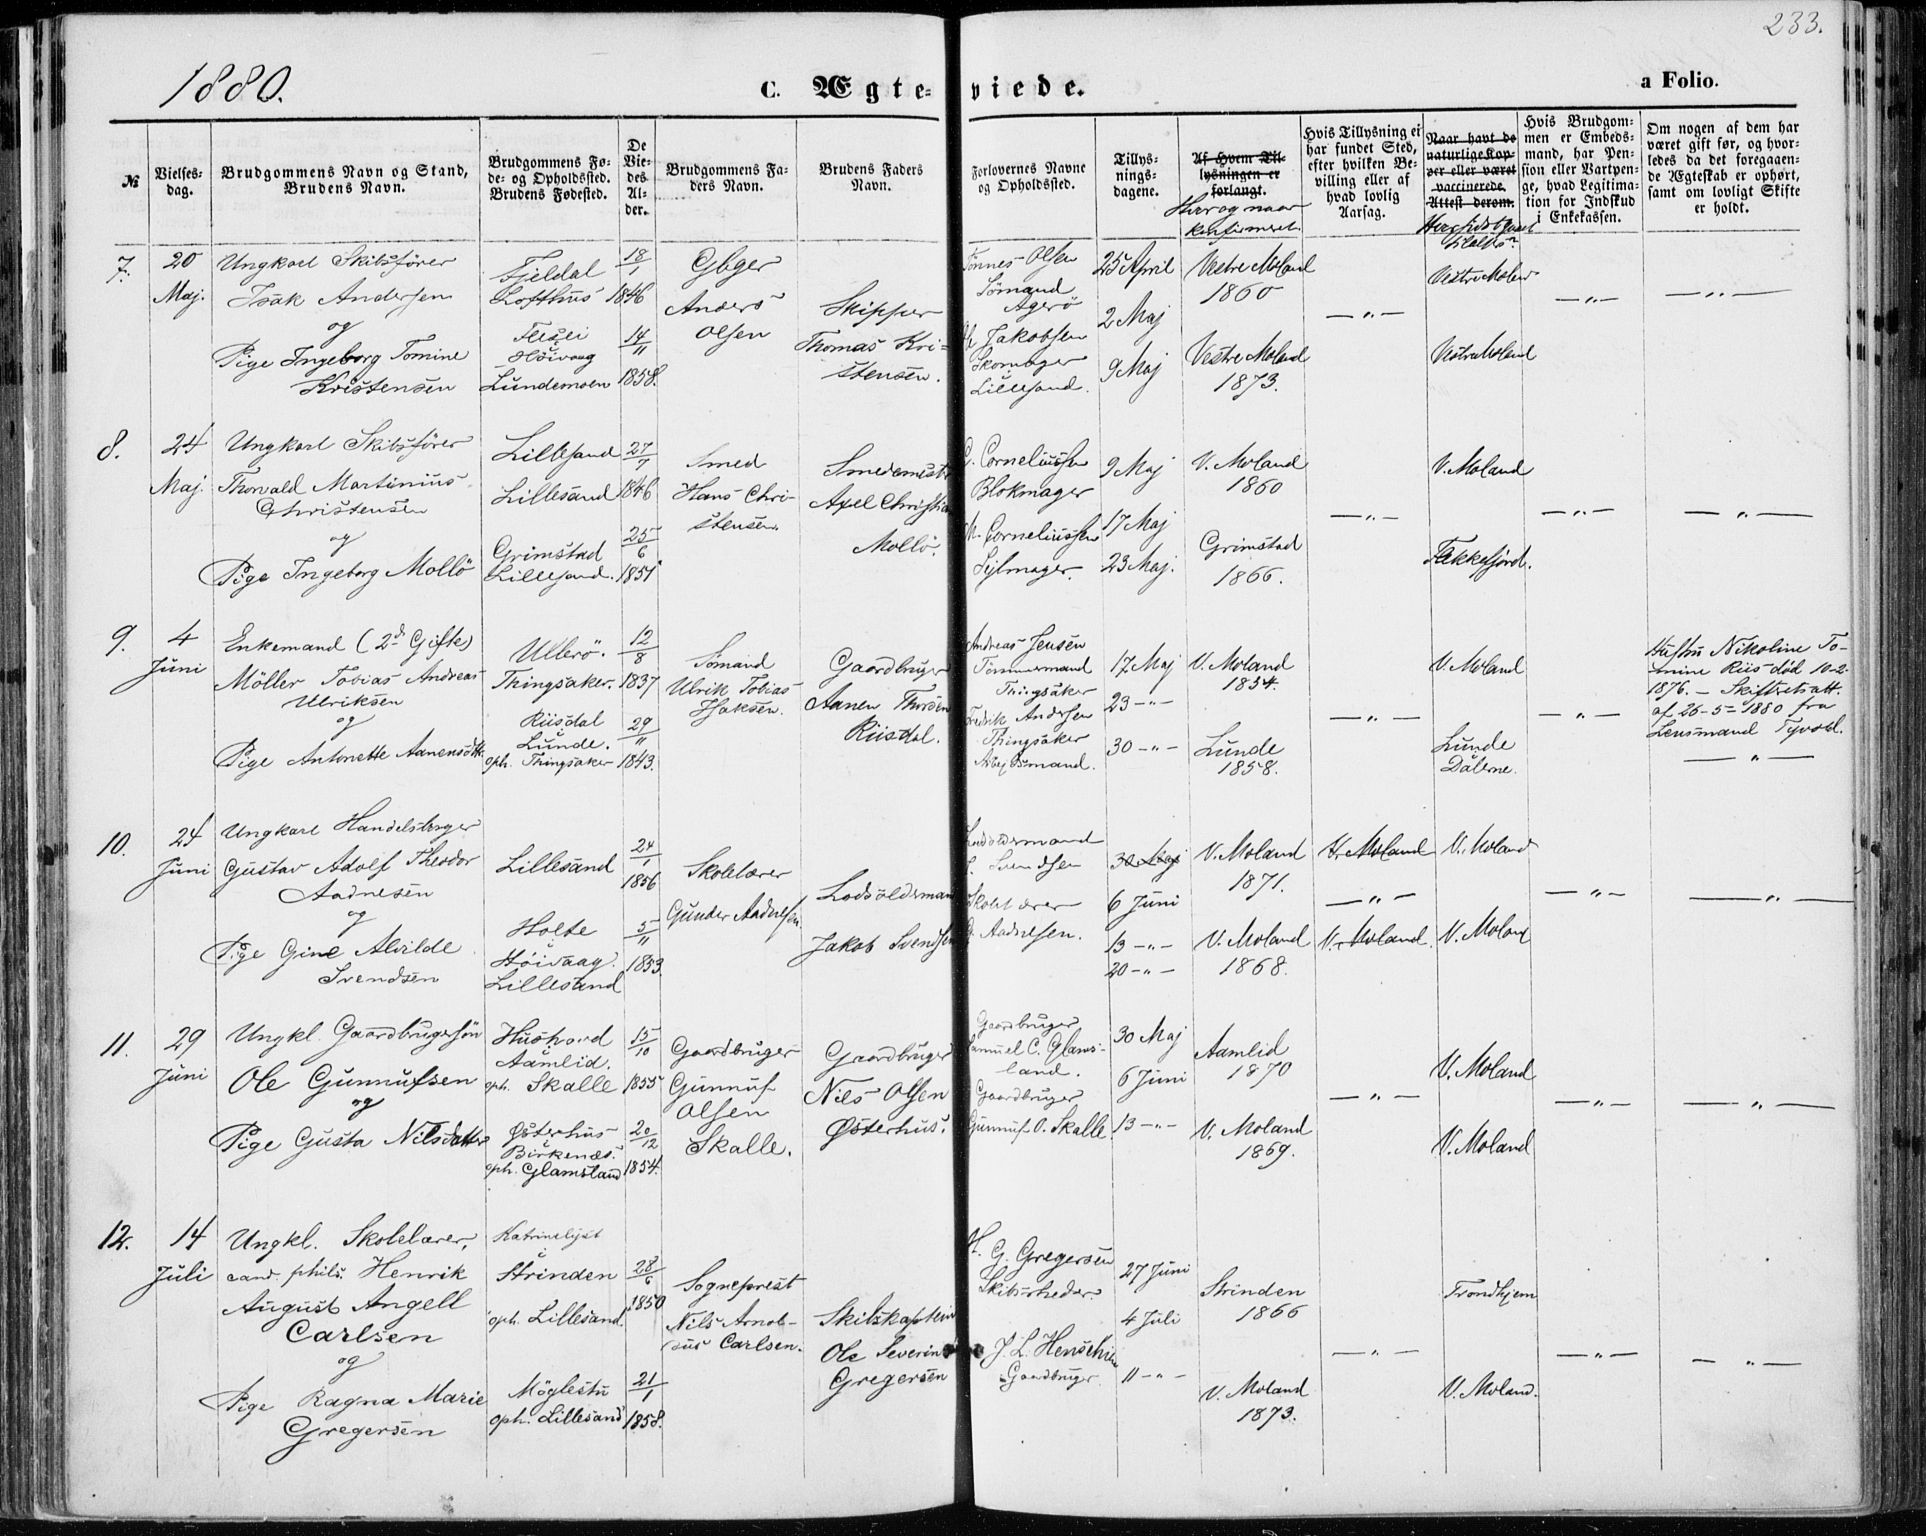 233.
1880.
C. Ægte-
viede.
a Folio.
№
Vielses-
dag.
Brudgommens Navn og Stand,
Brudens Navn.
Brudgommens Fø-
de- og Opholdssted.
Brudens Fødested.
De
Vie-
des
Al-
der.
Brudgommens Fa-
ders Navn.
Brudens Faders
Navn.
Forlovernes Navne
og Opholdssted.
Tillys-
nings-
dagene.
Af Hvem Til-
lysningen er
forlangt.
Hvor og naar
konfirmeret.
Hvis Tillysning ei
har fundet Sted,
efter hvilken Be-
villing eller af
hvad lovlig
Aarsag.
Naar havt de
naturlige Kop-
per eller været
vaccinerede.
Attest derom.
Hvis Brudgom-
men er Embeds-
mand, har Pen-
sion eller Vartpen-
ge, hvad Legitima-
tion for Indskud
i Enkekassen.
Om nogen af dem har
været gift før, og hvor-
ledes da det foregaaen-
de Ægteskab er ophørt,
samt om lovligt Skifte
er holdt.
7.
20
Maj.
Ungkarl Skibsfører
Isak Andersen
og
Pige Ingeborg Tomine
Kristensen
Fjeldal
Lofthus
Høivaag
Lundemoen
18/1
1846
14/11
1858.
Anders
Olsen
Skipper
Thomas Kri-
stensen.
Tønnes Olsen
Sømand
Agerø
Jakobsen
Skomager
Lillesand.
25 April
2 Maj
9 Maj
Vestre Moland
1860
Vestre Moland
1873.
— " —
Vestre Molan
Vestre Moland
— " —
— " —
8.
24
Maj.
Ungkarl Skibsfører
Thorvald Martinius
Christensen
og
Pige Ingeborg Mollö
Lillesand
Lillesand
Grimstad
Lillesand.
27/7
1846
25/6
1851
Smed
Hans Chri-
stensen.
Smedemestr
Axel Christian
Mollö.
Corneliussen
Blokmager
M. Corneliussen
Sejlmager.
9 Maj
17 Maj
23 Maj.
V. Moland
1860
Grimstad
1866.
— " —
V. Moland
Fækkefjord.
— " —
— " —
9.
4
Juni
Enkemand (2d Gifte)
Möller Tobias Andreas
Ulriksen
og
Pige Antonette Aanensdtt.
Ulerö.
Tingsaker.
Riisdal
Lunde.
oph. Tingsaker
12/8
1837
29/11
1843.
Sømand
Ulrik Tobias
Isaksen.
Gaardbruger
Aanen Thorsen
Riisdal.
Andreas Jensen
Tømmermand
Thingsaker
Fredrik Andersen
Thingsaker
Arbejdsmand.
17 Maj
23 — " —
30 — " —
V. Moland
1854.
Lunde
1858.
— " —
V. Moland
Lunde
Dalerne.
— " —
Hustru Nikoline To-
mine Riis död 10-2-
1876. — Skifteretsatt.
af 26-5-1880 fra
Lensmand Tyvold.
— " —
10.
24
Juni
Ungkarl Handelsborger
Gustav Adolf Theodor
Aadnesen
og
Pige Gine Alvilde
Svendsen
Lillesand
Holte
i
Höivaag.
Lillesand
24/1
1856
5/11
1853.
Skolelærer
Gunder Aadnesen
Lodsoldermand
Jakob Svendsen
Lodsoldermand
Svendsen
Skolelærer
G. Aadnesen.
30 Maj
6 Juni
13 — " —
20 — " —
V. Moland
1871.
V. Moland
1868.
V. Moland
— " —
V. Moland
V. Moland
V. Moland
— " —
— " —
11.
29
Juni
Ungkl. Gaardbrugersøn
Ole Gunnufsen
og
Pige Gusta Nilsdatter
Aamlid.
oph. Skalle
Østerhus
Birkenæs.
oph. Glamsland
15/10
1855
20/12
1854.
Gaardbruger
Gunnuf
Olsen
Skalle.
Gaardbruger
Nils Olsen
Østerhus.
Gaardbruger
Samuel C. Glams-
land.
Gaardbruger
Gunnuf O. Skalle.
30 Maj
6 Juni
13 — " —
Aamlid
1870
V. Moland
1869.
— " —
V. Moland
V. Moland
— " —
— " —
12.
14
Juli
Ungkl. Skolelærer,
cand. phils. Henrik
August Angell
Carlsen
og
Pige Ragna Marie
Gregersen
Katrinelyst
i
Strinden
oph. Lillesand.
Möglestu
oph. Lillesand
28/6
1850
21/1
1858.
Sogneprest
Nils Arnol-
dus Carlsen.
Skibskaptein
Ole Severin
Gregersen
H. G. Gregersen
Skibsrheder.
J. L. Henschien
Gaardbruger.
27 Juni
4 Juli
11 — " —
Strinden
1866
V. Moland
1873.
— " —
Trondhjem
V. Moland.
— " —
— " —